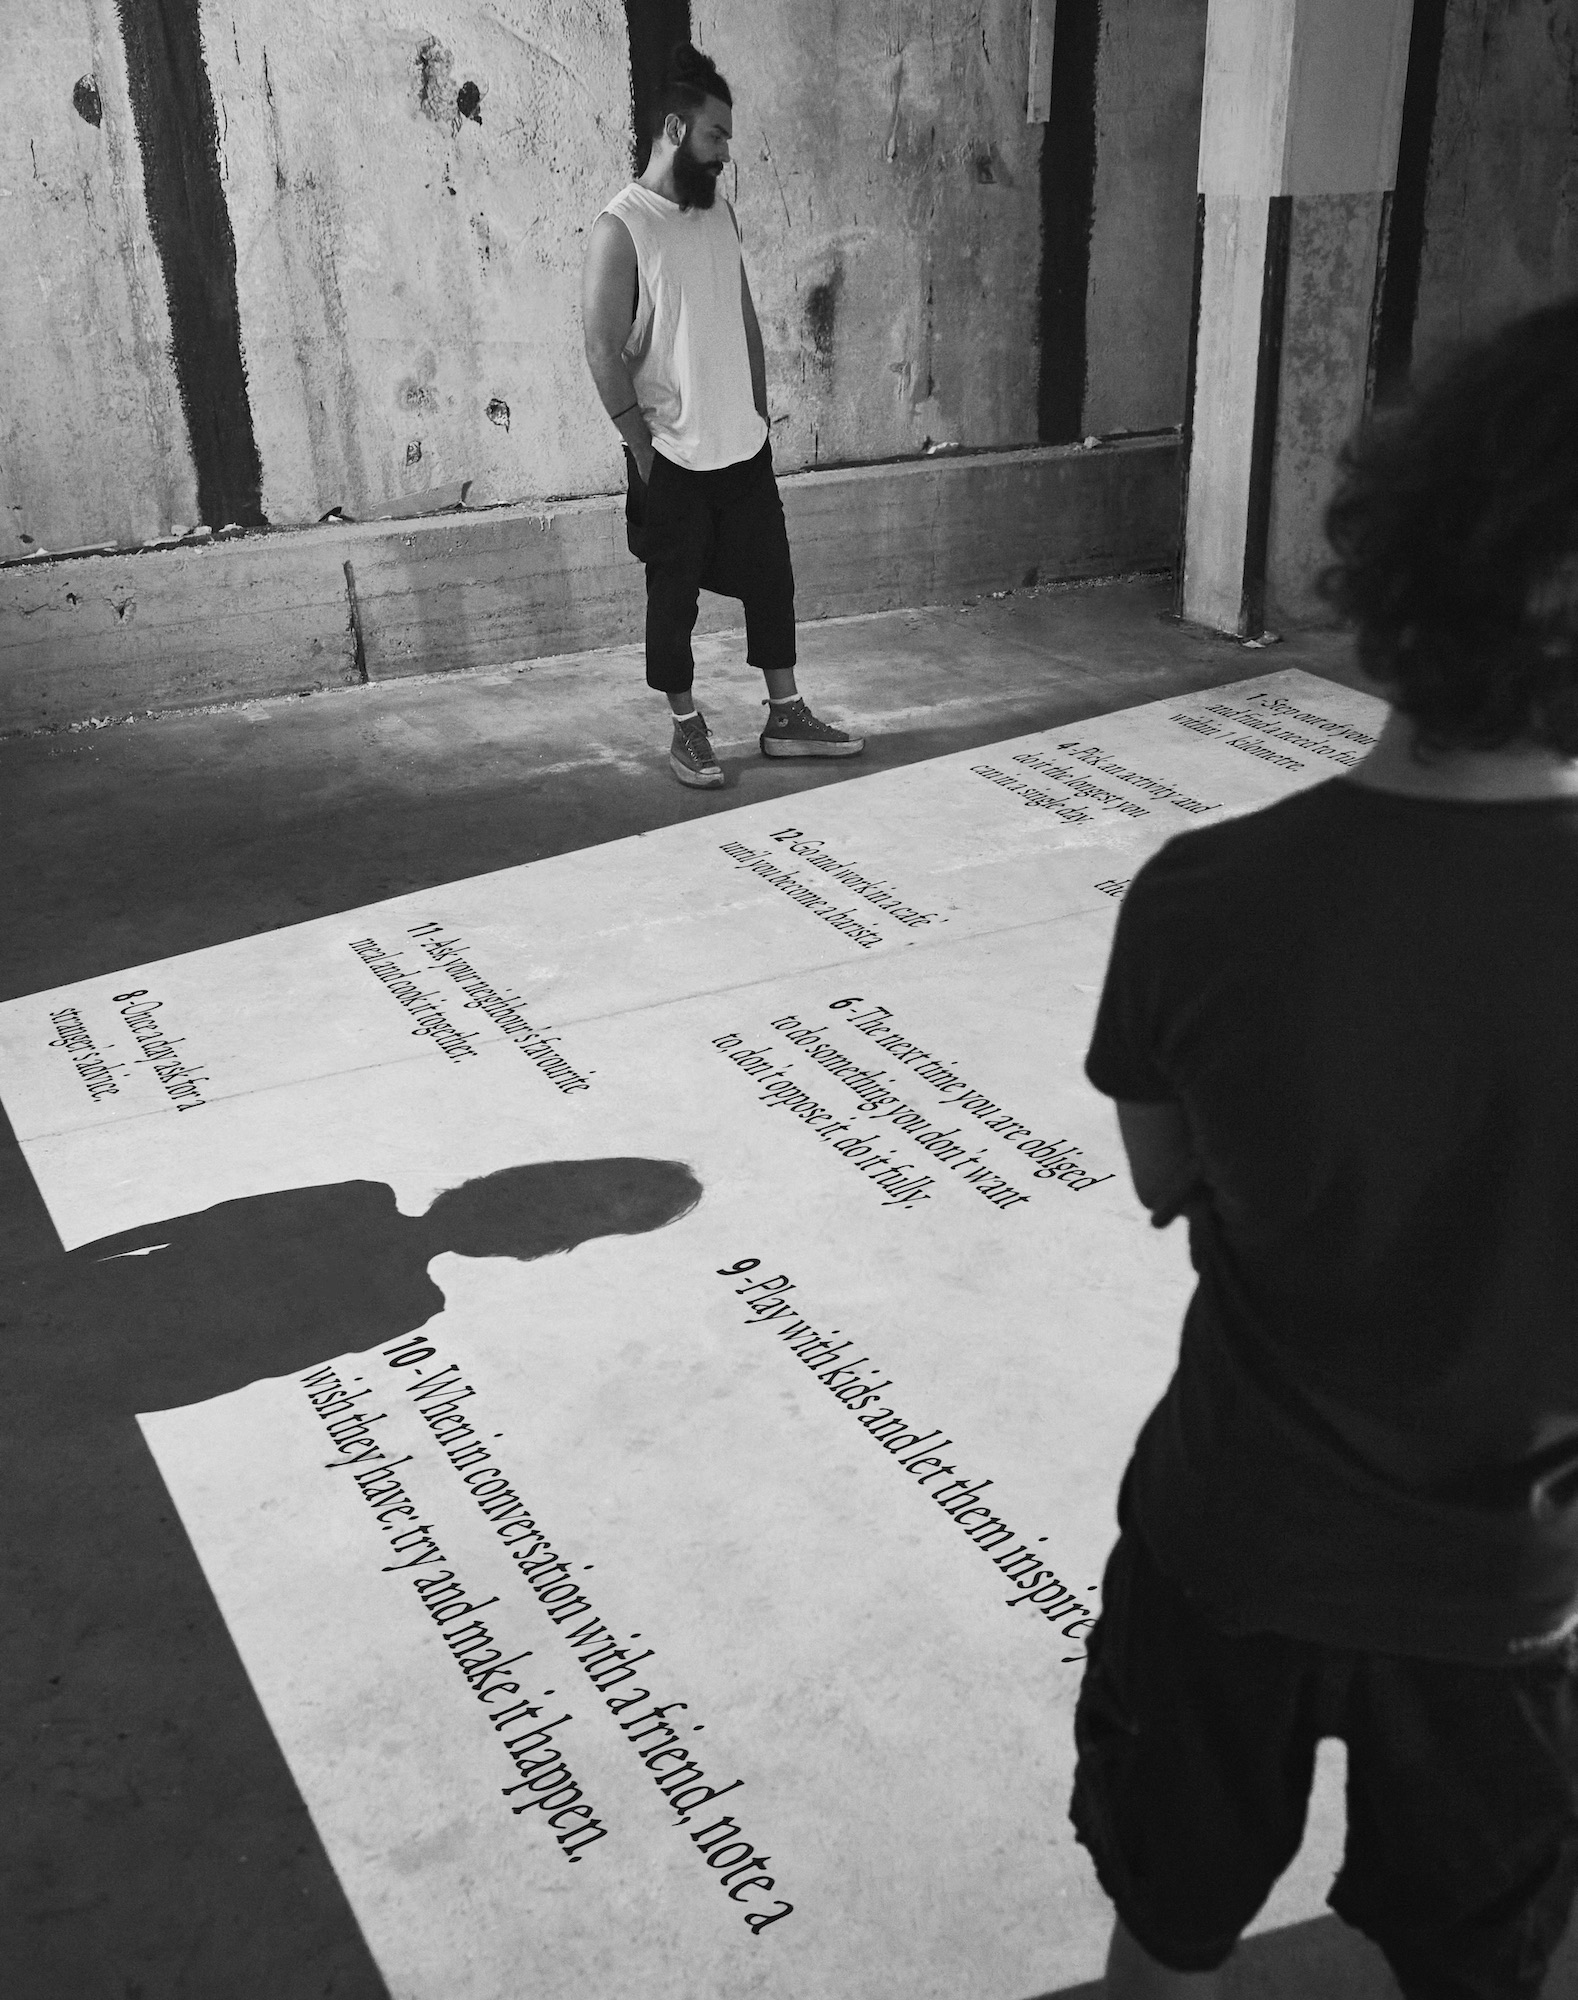 1 - Step out of your
and find a need to ful
within 1 kilometre.
4 - Pick an activity and
do it the longest you
can in a single day.
12 - Go and work in a café
until you become a barista.
11 - Ask your neighbour's favourite
meal and cook it together.
8 - Once a day ask for a
stranger's advice.
the
6 - The next time you are obliged
to do something you don't want
to, don't oppose it, do it fully.
9 - Play with kids and let them inspire
10 - When in conversation with a friend, note a
wish they have; try and make it happen.